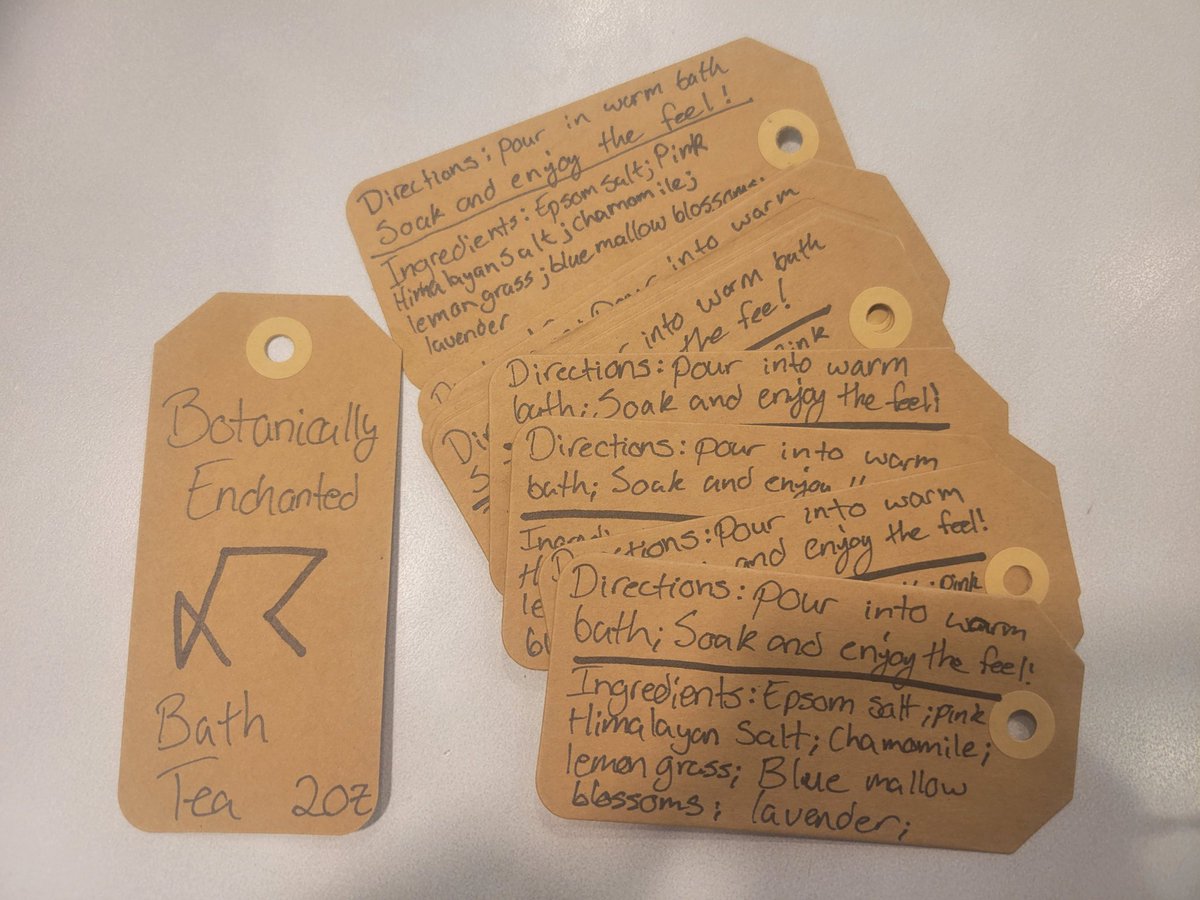 Botanically
Enchanted
Bath
Tea 2oz
Directions: Pour in warm bath
Soak and enjoy the feel!
Ingredients: Epsom salt; Pink
Himalayan Salt; chamomile;
lemongrass; blue mallow blossoms;
lavender
Pour into warm
into warm bath
the feel!
pink
Directions: Pour into warm
bath; Soak and enjoy the feel!
Directions: Pour into warm
bath; Soak and enjoy
Pour into warm
and enjoy the feel!
pink
Directions: Pour into warm
bath; Soak and enjoy the feel!
Ingredients: Epsom salt; pink
Himalayan Salt; Chamomile;
lemon grass; Blue mallow
blossoms; lavender;